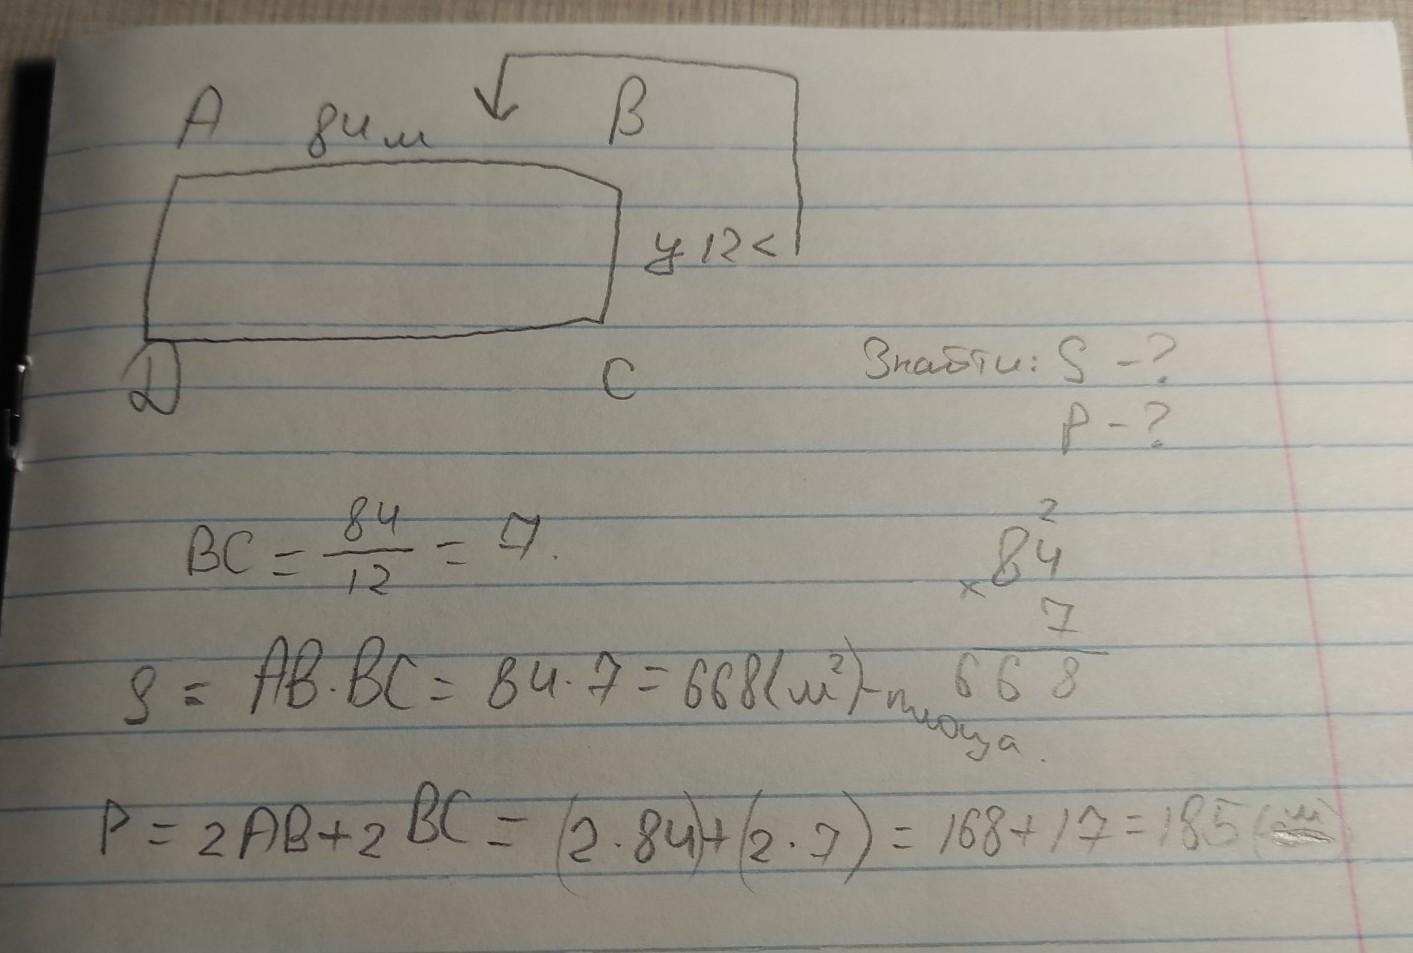 A 84м B
у 12 <
D C
Знайти: S - ?
P - ?
BC = 84/12 = 7.
2
84
× 7
668
S = AB·BC = 84·7 = 668(м²) - площа.
P = 2AB + 2BC = (2·84) + (2·7) = 168 + 17 = 185 (м)